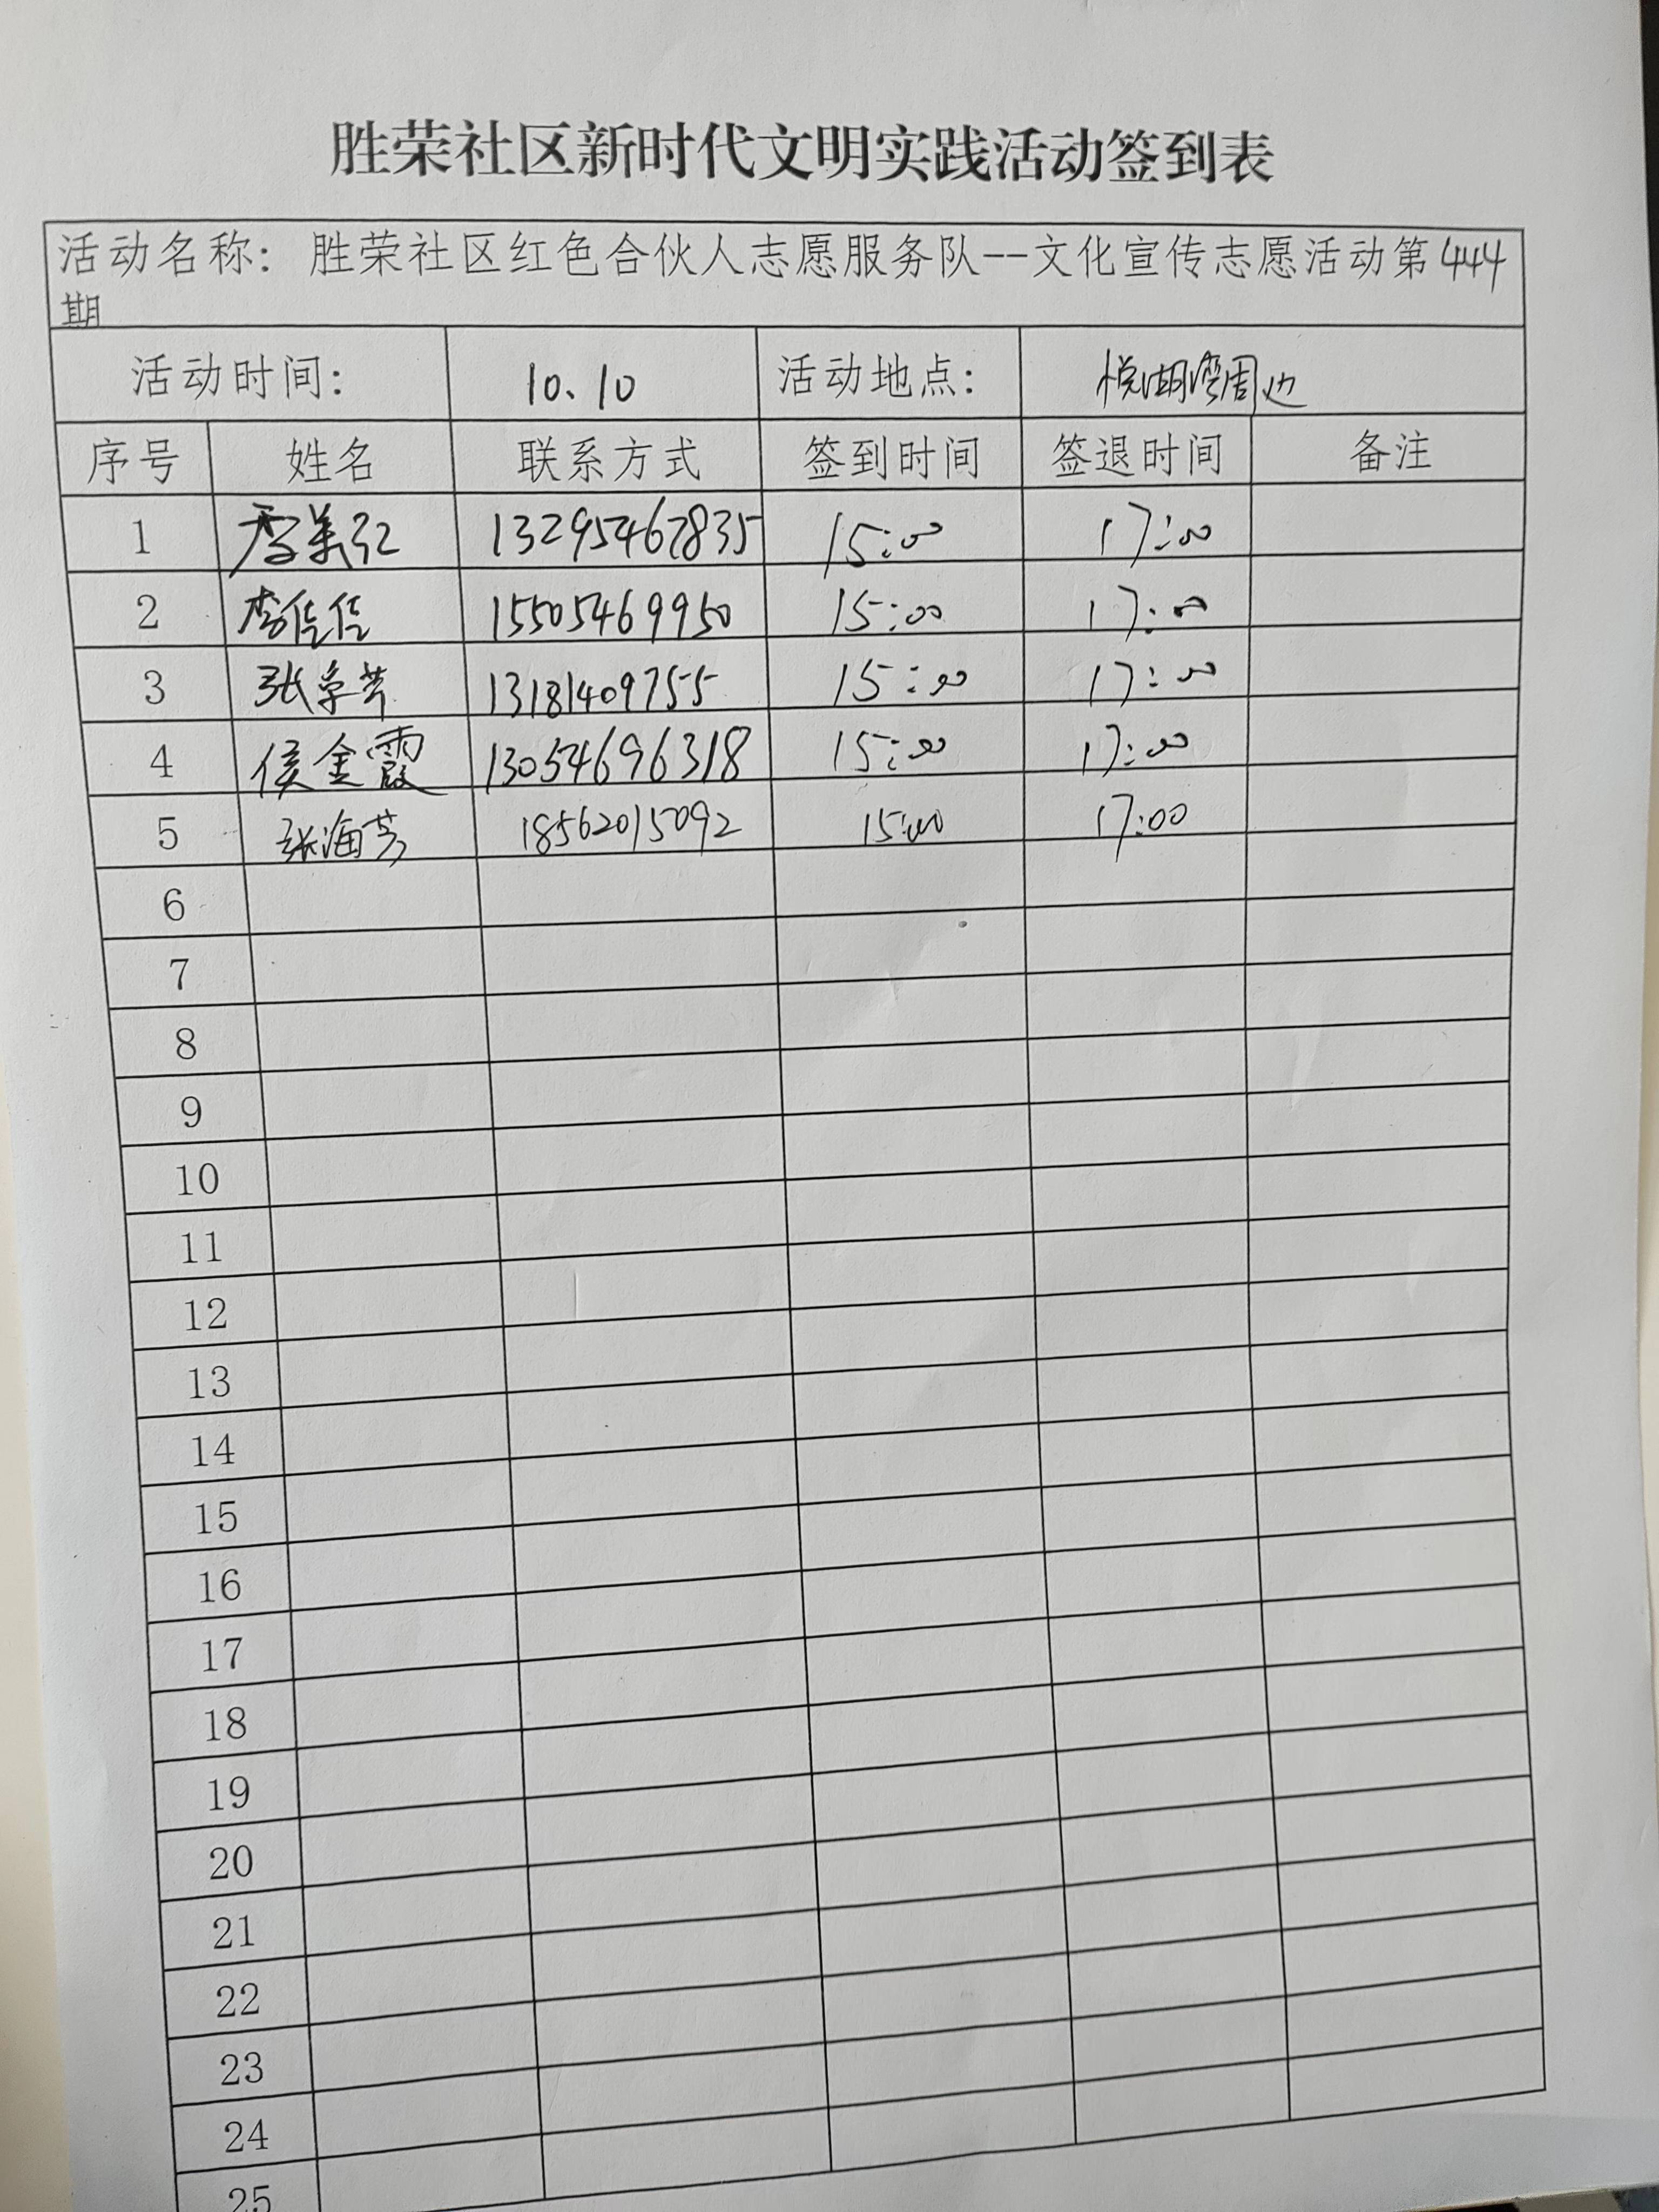 胜荣社区新时代文明实践活动签到表
活动名称：胜荣社区红色合伙人志愿服务队--文化宣传志愿活动第444
期
活动时间： 10.10 活动地点： 悦湖湾周边
序号 姓名 联系方式 签到时间 签退时间 备注
1 李美红 13295467835 15:00 17:00
2 李佳佳 15505469950 15:00 17:00
3 张 13181409755 15:00 17:00
4 侯金霞 13054696318 15:00 17:00
5 张海芳 18562015092 15:00 17:00
6
7
8
9
10
11
12
13
14
15
16
17
18
19
20
21
22
23
24
25